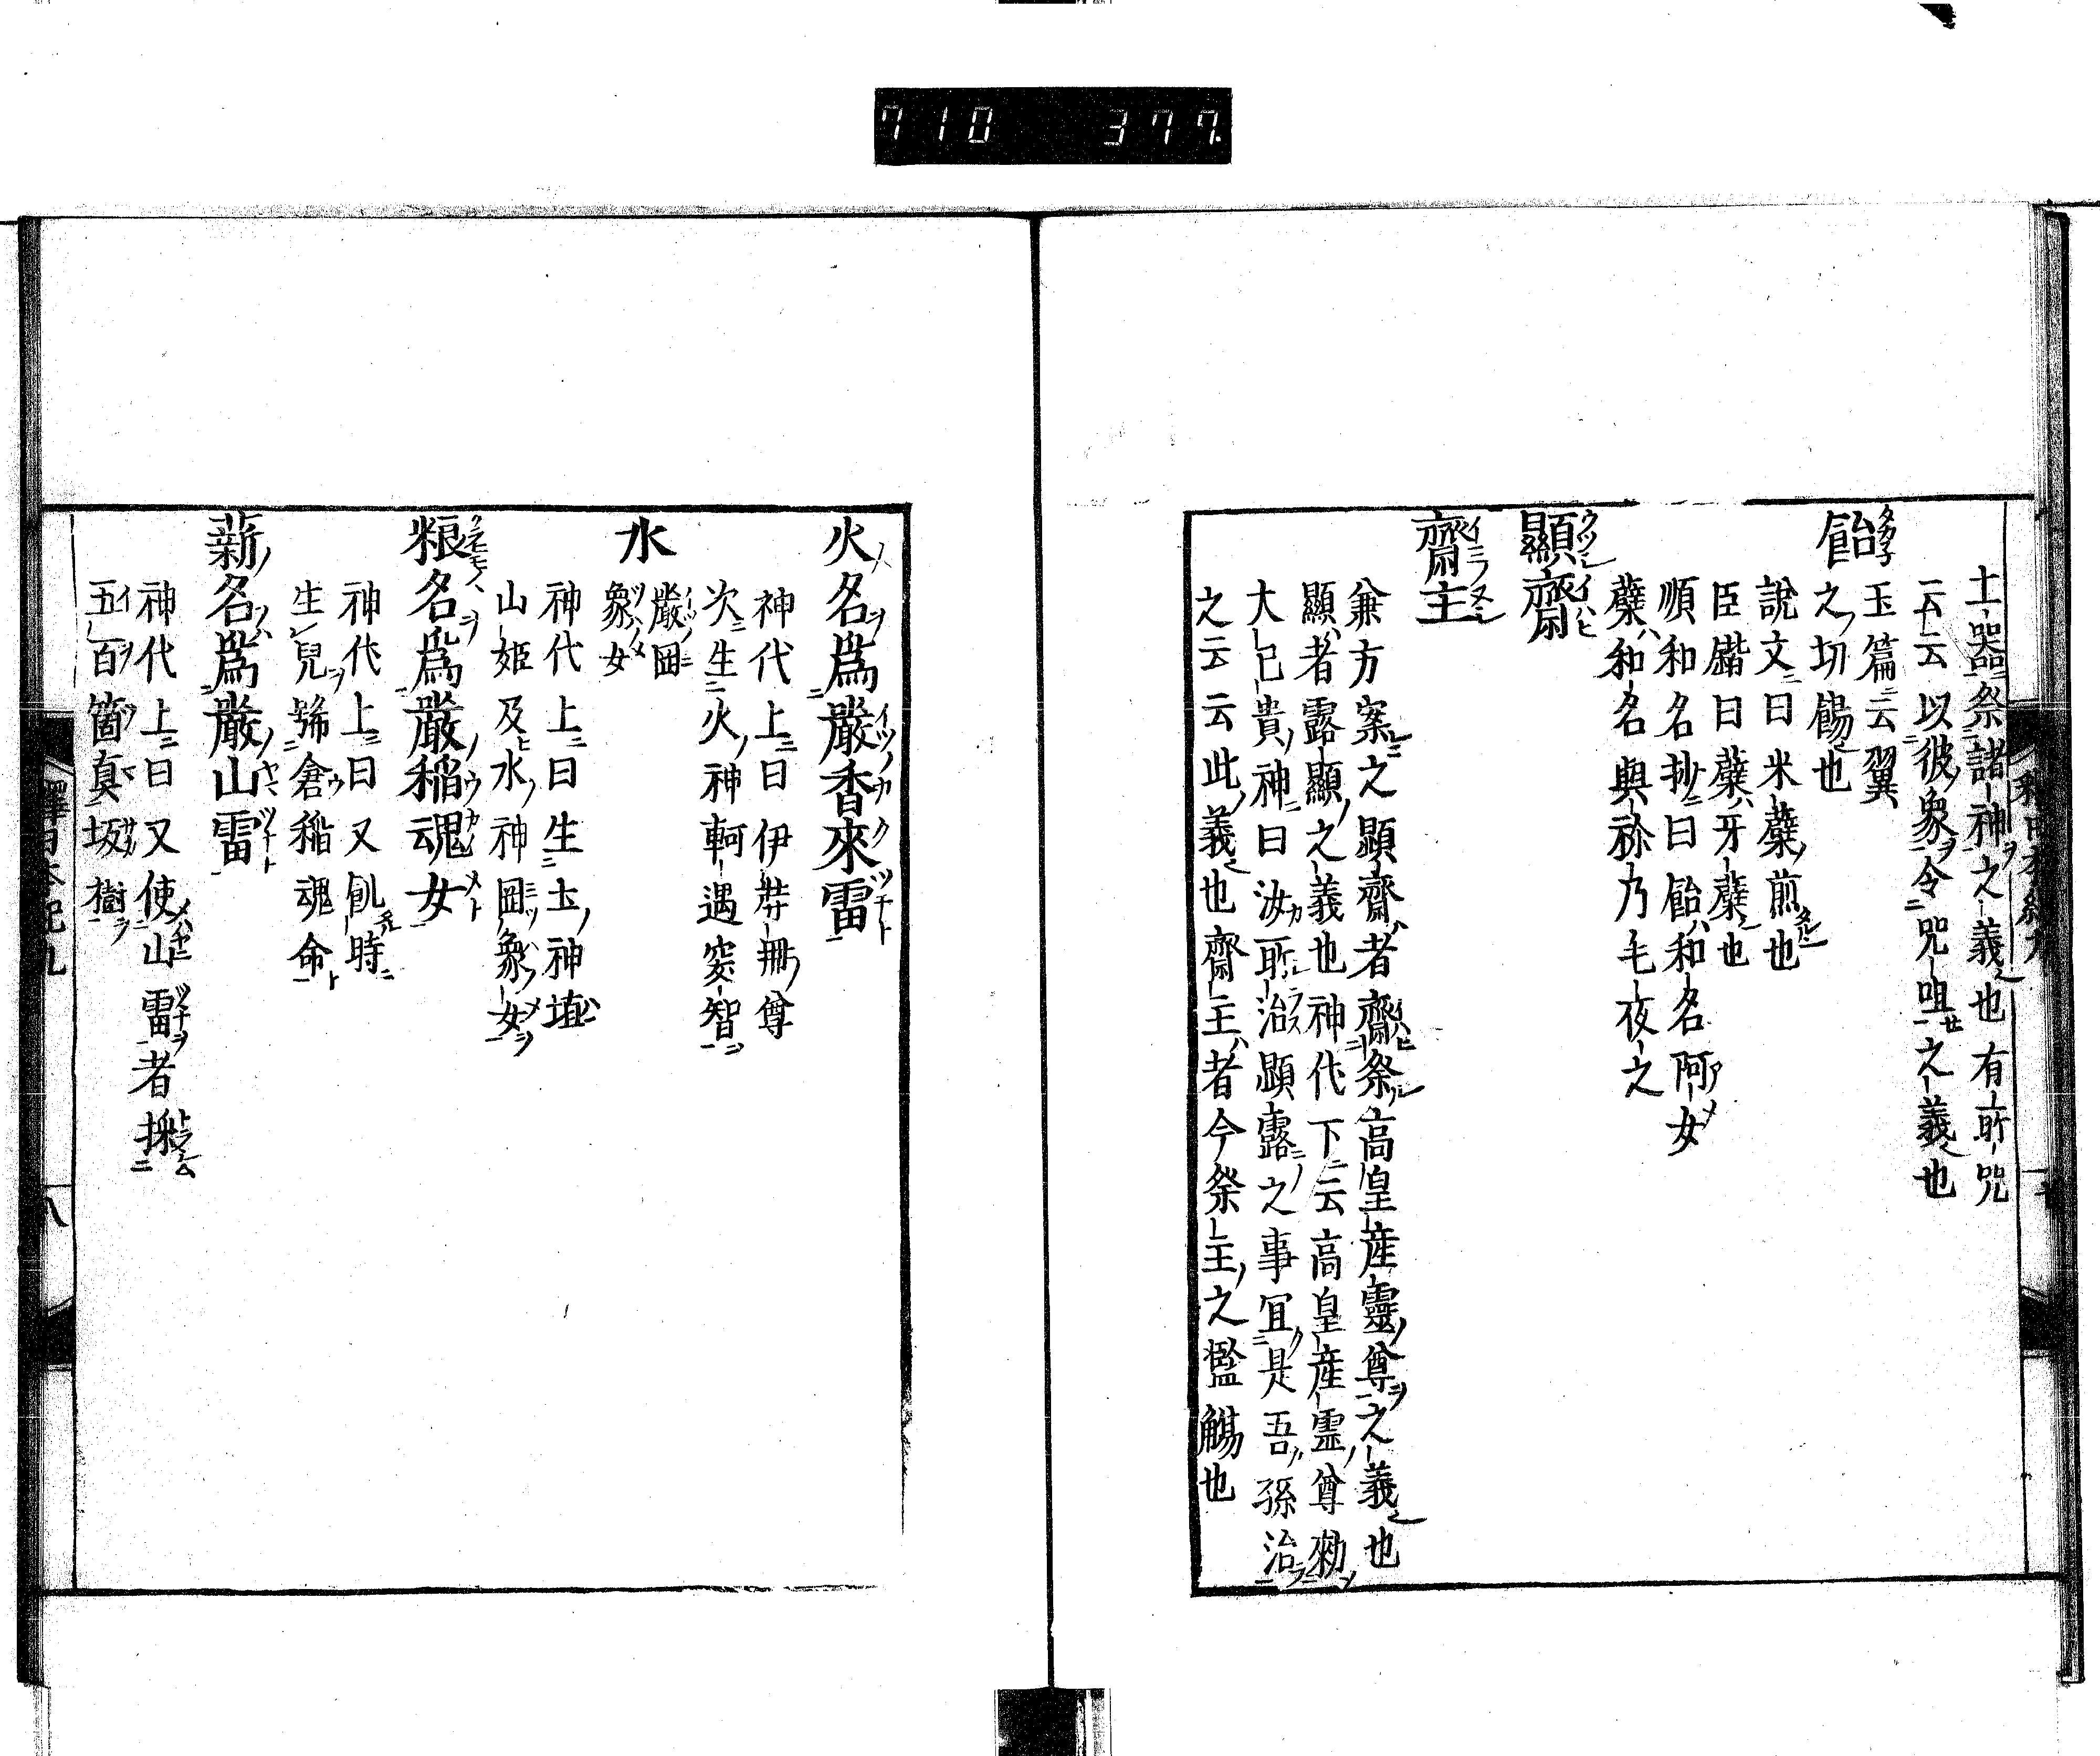 710 377
土器祭諸神之義也有所咒
云云以彼象令咒咀之義也
飴
玉篇云翼
之切餳也
說文曰米糱煎也
臣鍇曰糱牙糱也
順和名抄曰飴和名阿女
糱和名與祢乃毛夜之
顯齋
齋主
兼方案之顯齋者齋祭高皇産靈尊之義也
顯者露顯之義也神代下云高皇産霊尊勑
大已貴神曰汝所治顯露之事冝是吾孫治
之云云此義也齋主者今祭主之濫觴也
火名爲嚴香來雷
神代上曰伊弉冊尊
次生火神軻遇突智
水
嚴罔
象女
神代上曰生土神埴
山姬及水神罔象女
粮名爲嚴稲魂女
神代上曰又飢時
生兒號倉稲魂命
薪名爲嚴山雷
神代上曰又使山雷者採
五百箇真坂樹
釋日本紀九
八